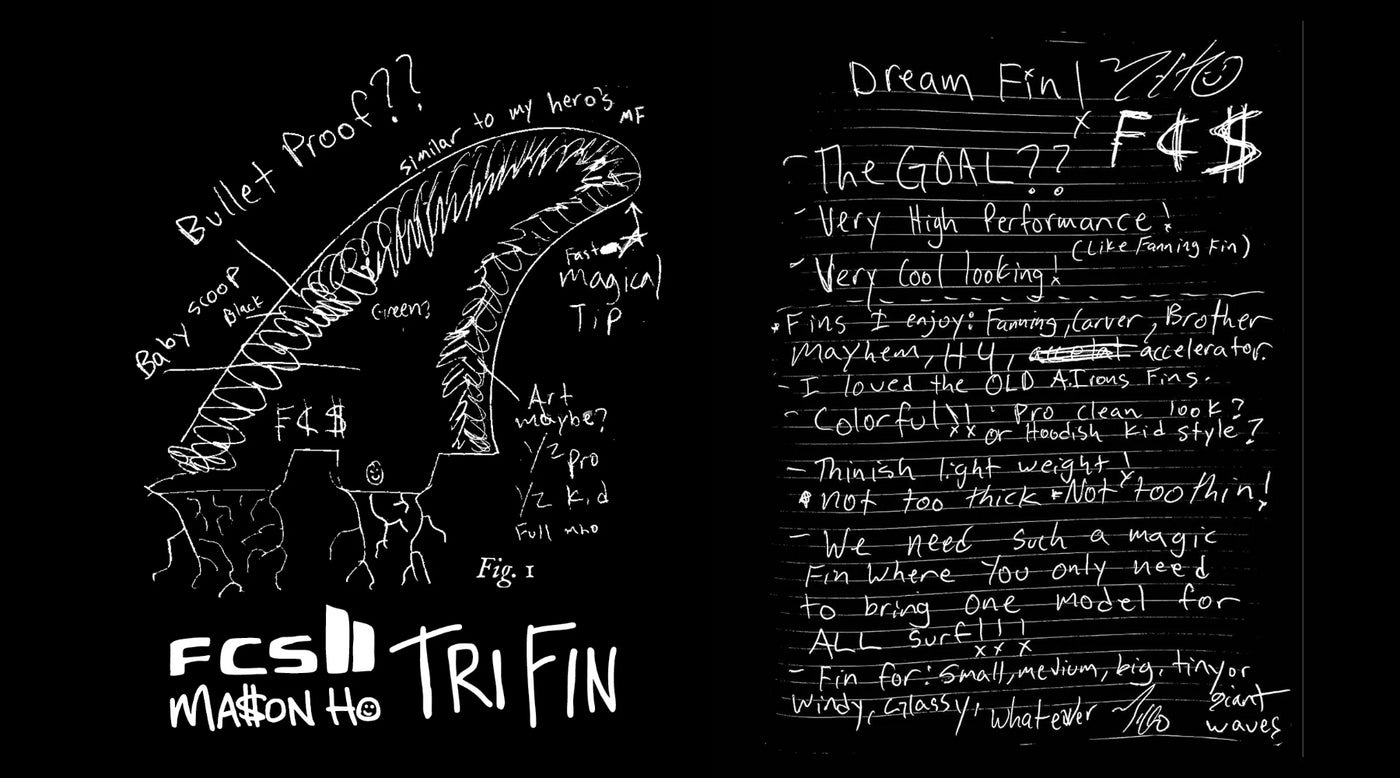 Bullet Proof??
similar to my hero's
MF
Baby scoop
Black
Green?
Fast
magical
Tip
F₵$
Art
maybe?
1/2 pro
1/2 kid
Full MHO
Fig. 1
FCS II
MA$ON HO
TRI FIN
Dream Fin!
x F₵$
- The GOAL??
- Very High Performance!
(Like Fanning Fin)
- Very Cool looking!
Fins I enjoy: Fanning, Carver, Brother
Mayhem, H4, accelerator.
- I loved the OLD A.Irons Fins.
- Colorful!! Pro clean look?
or Hoodish kid style?
- Thinish light weight!
not too thick - Not too thin!
- We need such a magic
Fin where you only need
to bring one model for
ALL surf!!!
x x x
- Fin for: small, medium, big, tiny or
giant
windy, Glassy, whatever
waves